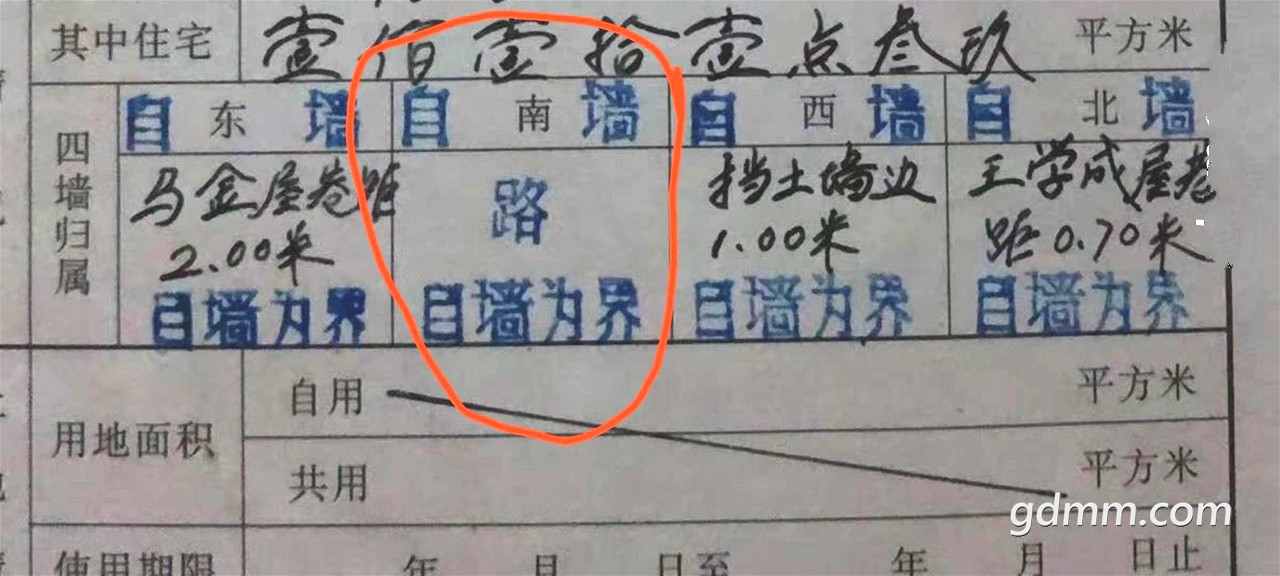 其中住宅 壹佰壹拾壹点叁玖 平方米
四墙归属
自 东 墙 自 南 墙 自 西 墙 自 北 墙
马金屋巷距 路 挡土墙边 王学成屋巷
2.00米 1.00米 距0.70米
自墙为界 自墙为界 自墙为界 自墙为界
用地面积
自用 平方米
共用 平方米
使用期限 年 月 日至 年 月 日止
gdmm.com